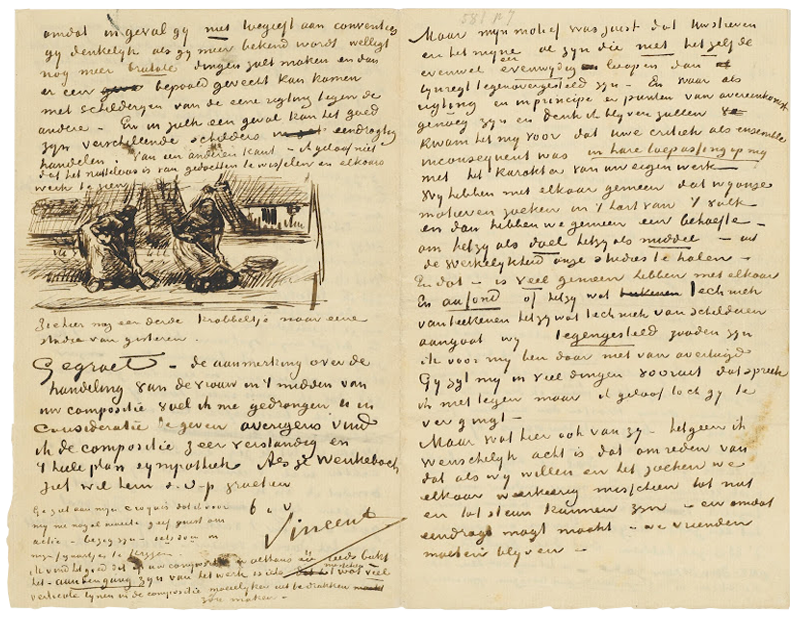 omdat in geval gy niet toegeeft aan conventies
gy denkelyk als gy meer bekend wordt welligt
nog meer brutale dingen zult maken en dan
er een bepaald gevecht kan komen
met schilderyen van de eene rigting tegen de
andere – En in zulk een geval kan het goed
zyn verschillende schilders eendragtig
handelen. Van een anderen kant – ik geloof niet
dat het nutteloos is van gedachten te wisselen en elkaars
werk te zien
Ziehier nog een derde krabbeltje naar eene
studie van gisteren.
Gegroet – de aanmerking over de
handeling van de vrouw in 't midden van
uw compositie voel ik me gedrongen U in
Consideratie te geven overigens vind
ik de compositie zeer verstandig en
't heele plan sympathiek Als ge Wenkebach
ziet wil hem s.v.p groeten
t. à. v
Vincent
Ge ziet aan myn croquis dat ik voor
my me nogal moeite geef juist om
actie – bezig zyn – zelfs in
myn figuurtjes te krygen.
Ik vind het goed dat in uw compositie althans iets
het – aan den gang zyn van het werk wat veel
verticale lynen in de compositie moeielyken uit te drukken
zou maken –
58 R 7
Maar myn motief was juist dat Uw streven
en het myne al zyn die niet hetzelfde
evenwel evenwydig loopen dan
lynregt tegenovergesteld zyn – En waar als
rigting en in principe er punten van overeenkomst
genoeg zyn en denk ik blyven zullen
kwam het my voor dat uwe critiek als ensemble
inconsequent was in hare toepassing op my
met het karakter van uw eigen werk –
Wy hebben met elkaar gemeen dat wy onze
motieven zoeken in 't hart van 't volk
en dan hebben we gemeen een behoefte –
om hetzy als doel hetzy als middel – uit
de werkelykheid onze studies te halen –
En dat – is veel gemeen hebben met elkaar
En au fond of hetzy wat techniek
van teekenen hetzy wat techniek van schilderen
aangaat wy tegengesteld zouden zyn
ik voor my ben daar niet van overtuigd
Gy zyt my in veel dingen vooruit dat spreek
ik niet tegen maar ik geloof toch gy te
ver gingt –
Maar wat hier ook van zy – hetgeen ik
wenschelyk acht is dat om reden van
dat als wy willen en het zoeken we
elkaar weerkeerig misschien tot nut
en tot steun kunnen zyn – en omdat
eendragt magt maakt – we vrienden
moeten blyven –